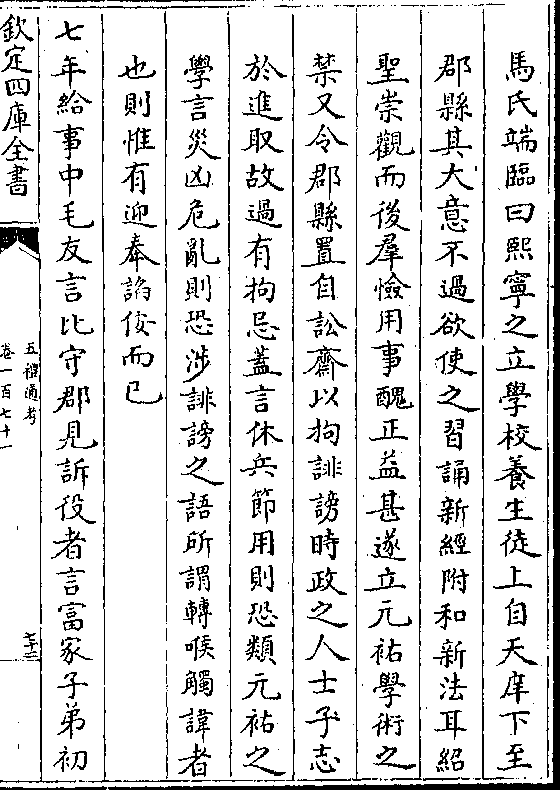 馬氏端臨曰熙寧之立學校養生徒上自天庠下至
郡縣其大意不過欲使之習誦新經附和新法耳紹
聖崇觀而後羣憸用事醜正益甚遂立元祐學術之
禁又令郡縣置自訟齋以拘誹謗時政之人士子志
於進取故過有拘忌蓋言休兵節用則恐類元祐之
學言災凶危亂則恐涉誹謗之語所謂轉喉觸諱者
也則惟有迎奉諂佞而已
七年給事中毛友言比守郡見訴役者言富家子弟初
欽定四庫全書
五禮通考
卷一百七十一